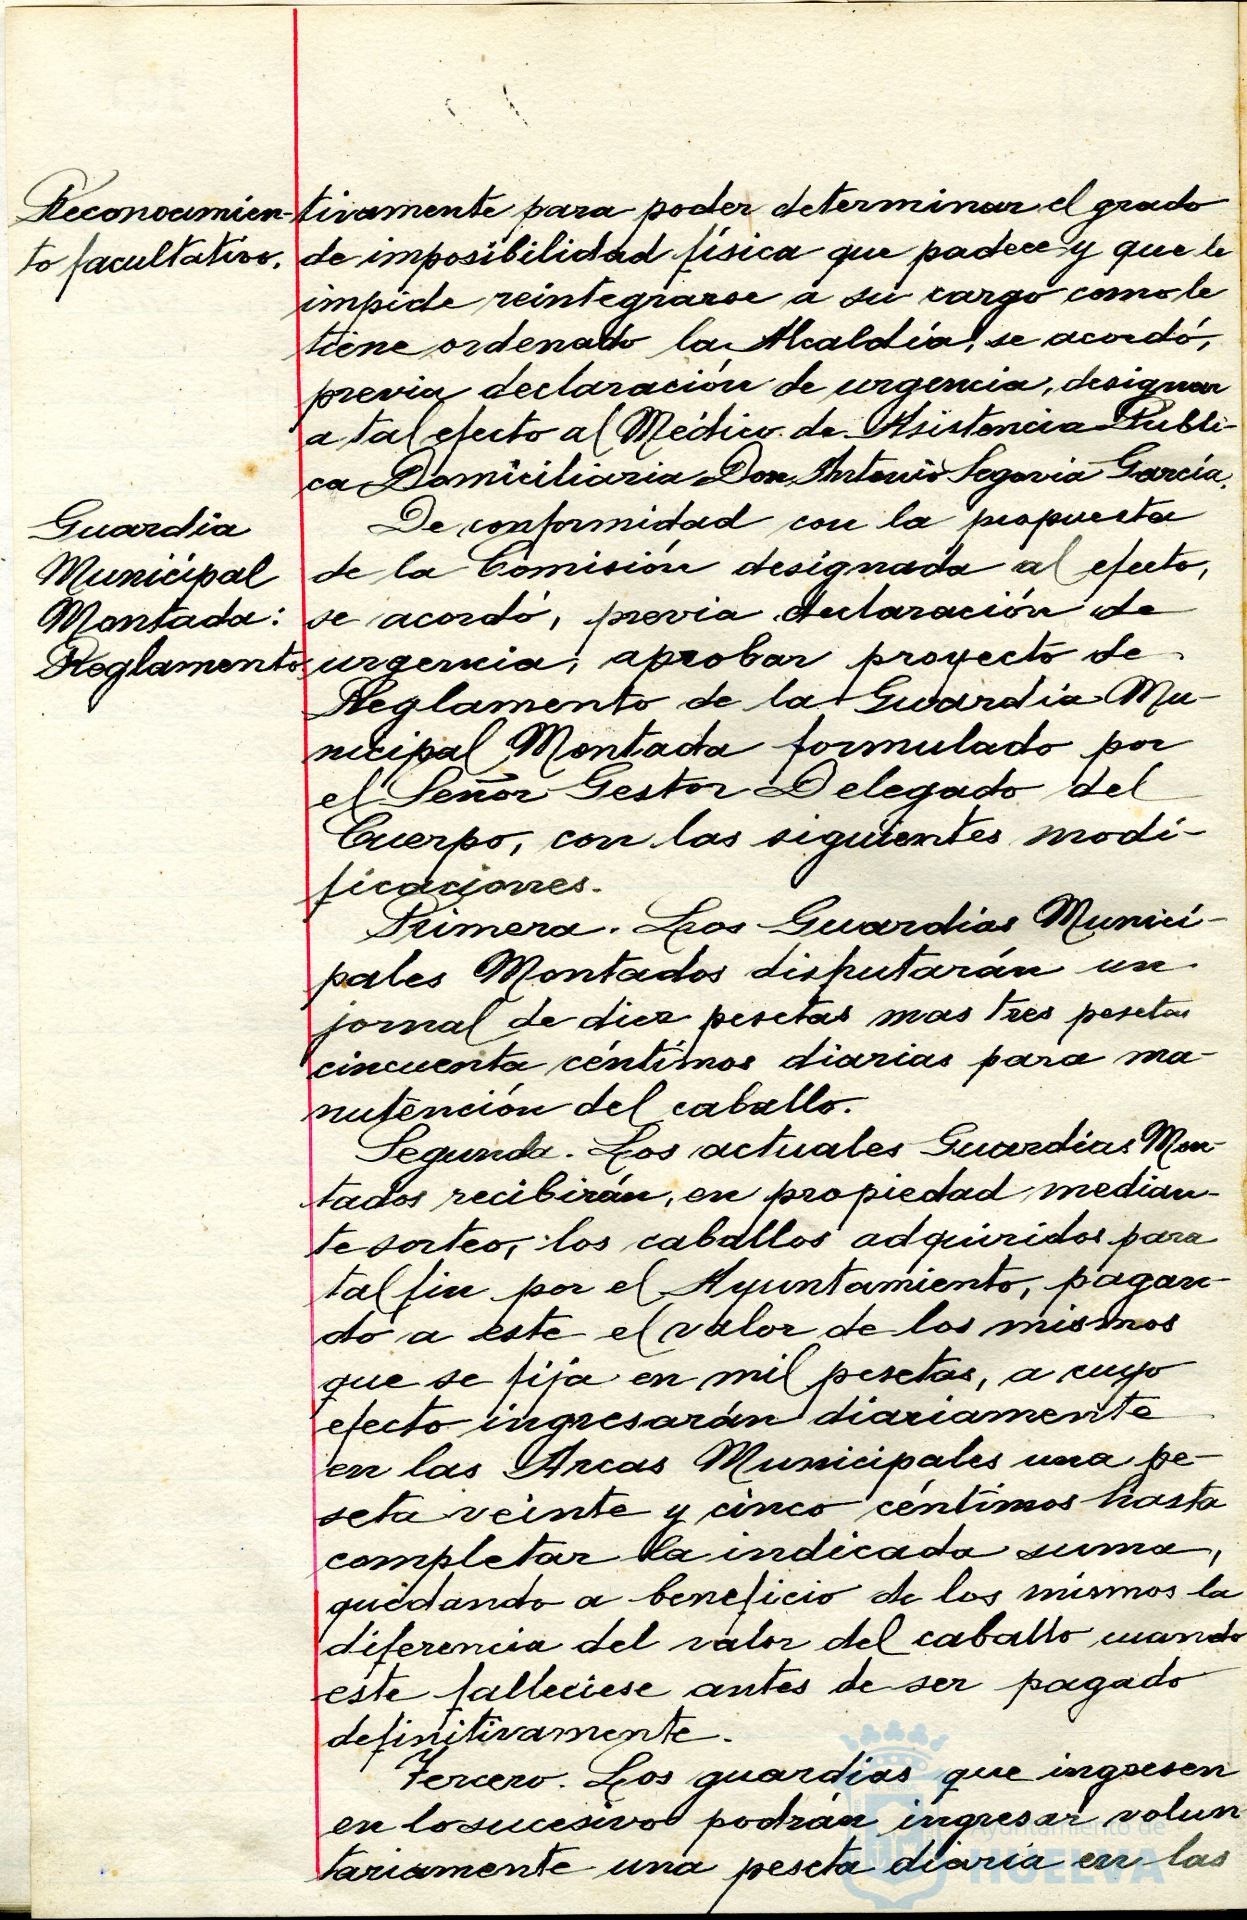 Reconocimien-
to facultativo.
tivamente para poder determinar el grado
de imposibilidad física que padece y que le
impide reintegrarse a su cargo como le
tiene ordenado la Alcaldía, se acordó,
previa declaración de urgencia, designar
a tal efecto al Médico de Asistencia Públi-
ca Domiciliaria Don Antonio Segovia García.
Guardia
Municipal
Montada:
Reglamento
De conformidad con la propuesta
de la Comisión designada al efecto,
se acordó, previa declaración de
urgencia, aprobar proyecto de
Reglamento de la Guardia Mu-
nicipal Montada formulado por
el Señor Gestor Delegado del
Cuerpo, con las siguientes modi-
ficaciones.
Primera. Los Guardias Munici-
pales Montados disfrutarán un
jornal de diez pesetas mas tres pesetas
cincuenta céntimos diarias para ma-
nutención del caballo.
Segunda. Los actuales Guardias Mon-
tados recibirán, en propiedad median-
te sorteo, los caballos adquiridos para
tal fin por el Ayuntamiento, pagan-
do a este el valor de los mismos
que se fija en mil pesetas, a cuyo
efecto ingresarán diariamente
en las Arcas Municipales una pe-
seta veinte y cinco céntimos hasta
completar la indicada suma,
quedando a beneficio de los mismos la
diferencia del valor del caballo cuando
este falleciese antes de ser pagado
definitivamente.
Tercero. Los guardias que ingresen
en lo sucesivo podrán ingresar volun
tariamente una peseta diaria en las
Ayuntamiento de
HUELVA